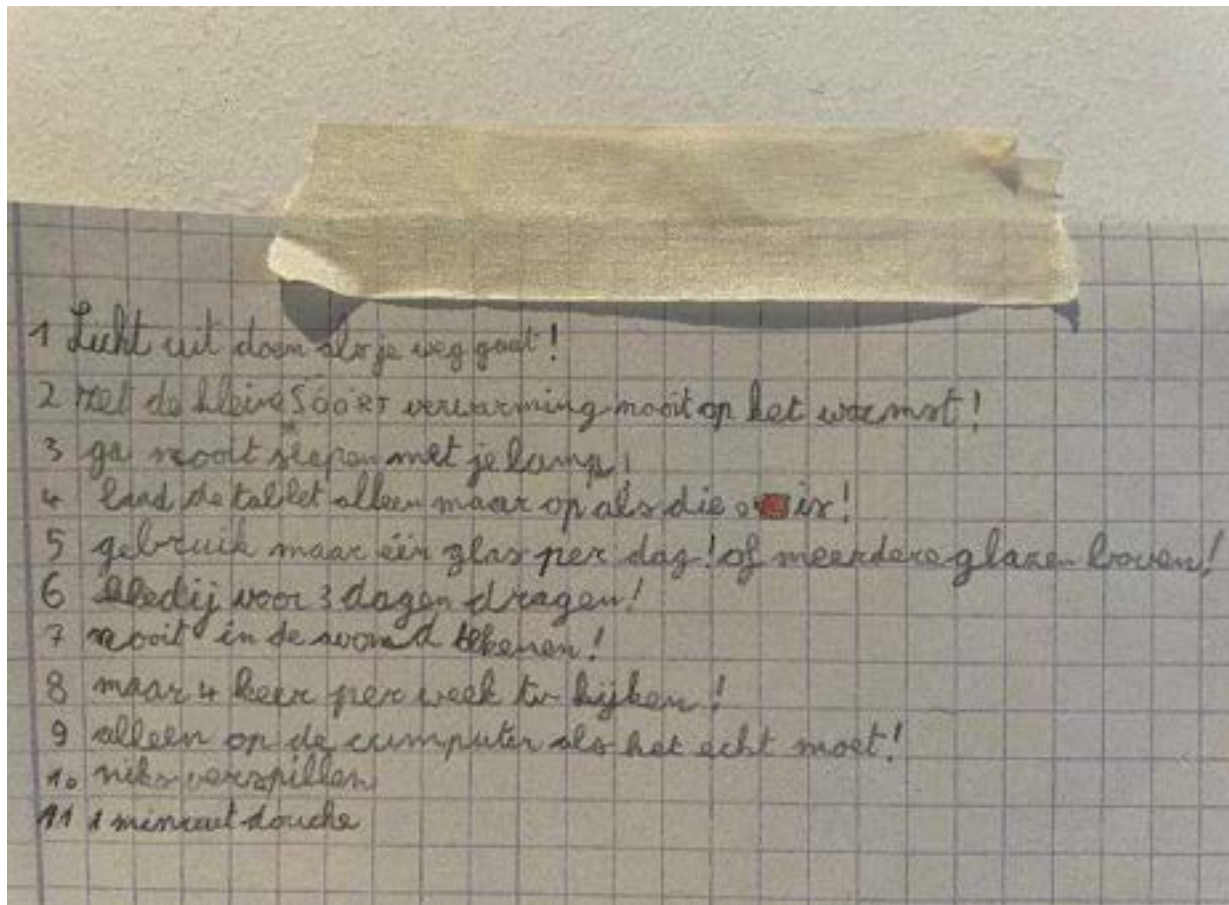 1 Licht uit doen als je weg gaat!
2 zet de kleine verwarming nooit op het warmst!
3 ga nooit slapen met je lamp!
4 laad de tablet alleen maar op als die is!
5 gebruik maar één glas per dag! of meerdere glazen boven!
6 kledij voor 3 dagen dragen!
7 nooit in de avond tekenen!
8 maar 4 keer per week tv kijken!
9 alleen op de cumputer als het echt moet!
10 niks verspillen
11 1 minuut douche